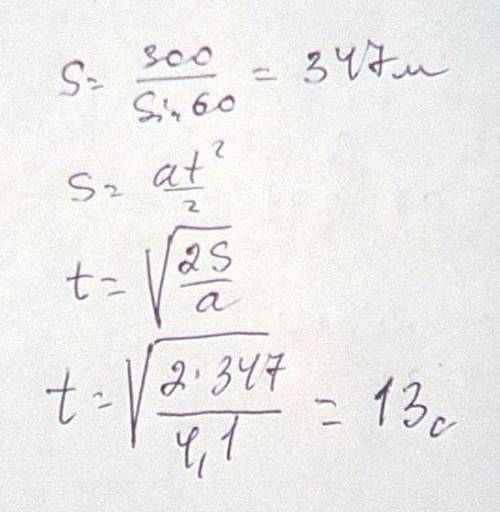 S = 300 / Sin 60 = 347 м
S = at² / 2
t = √(2S / a)
t = √(2·347 / 4,1) = 13 с